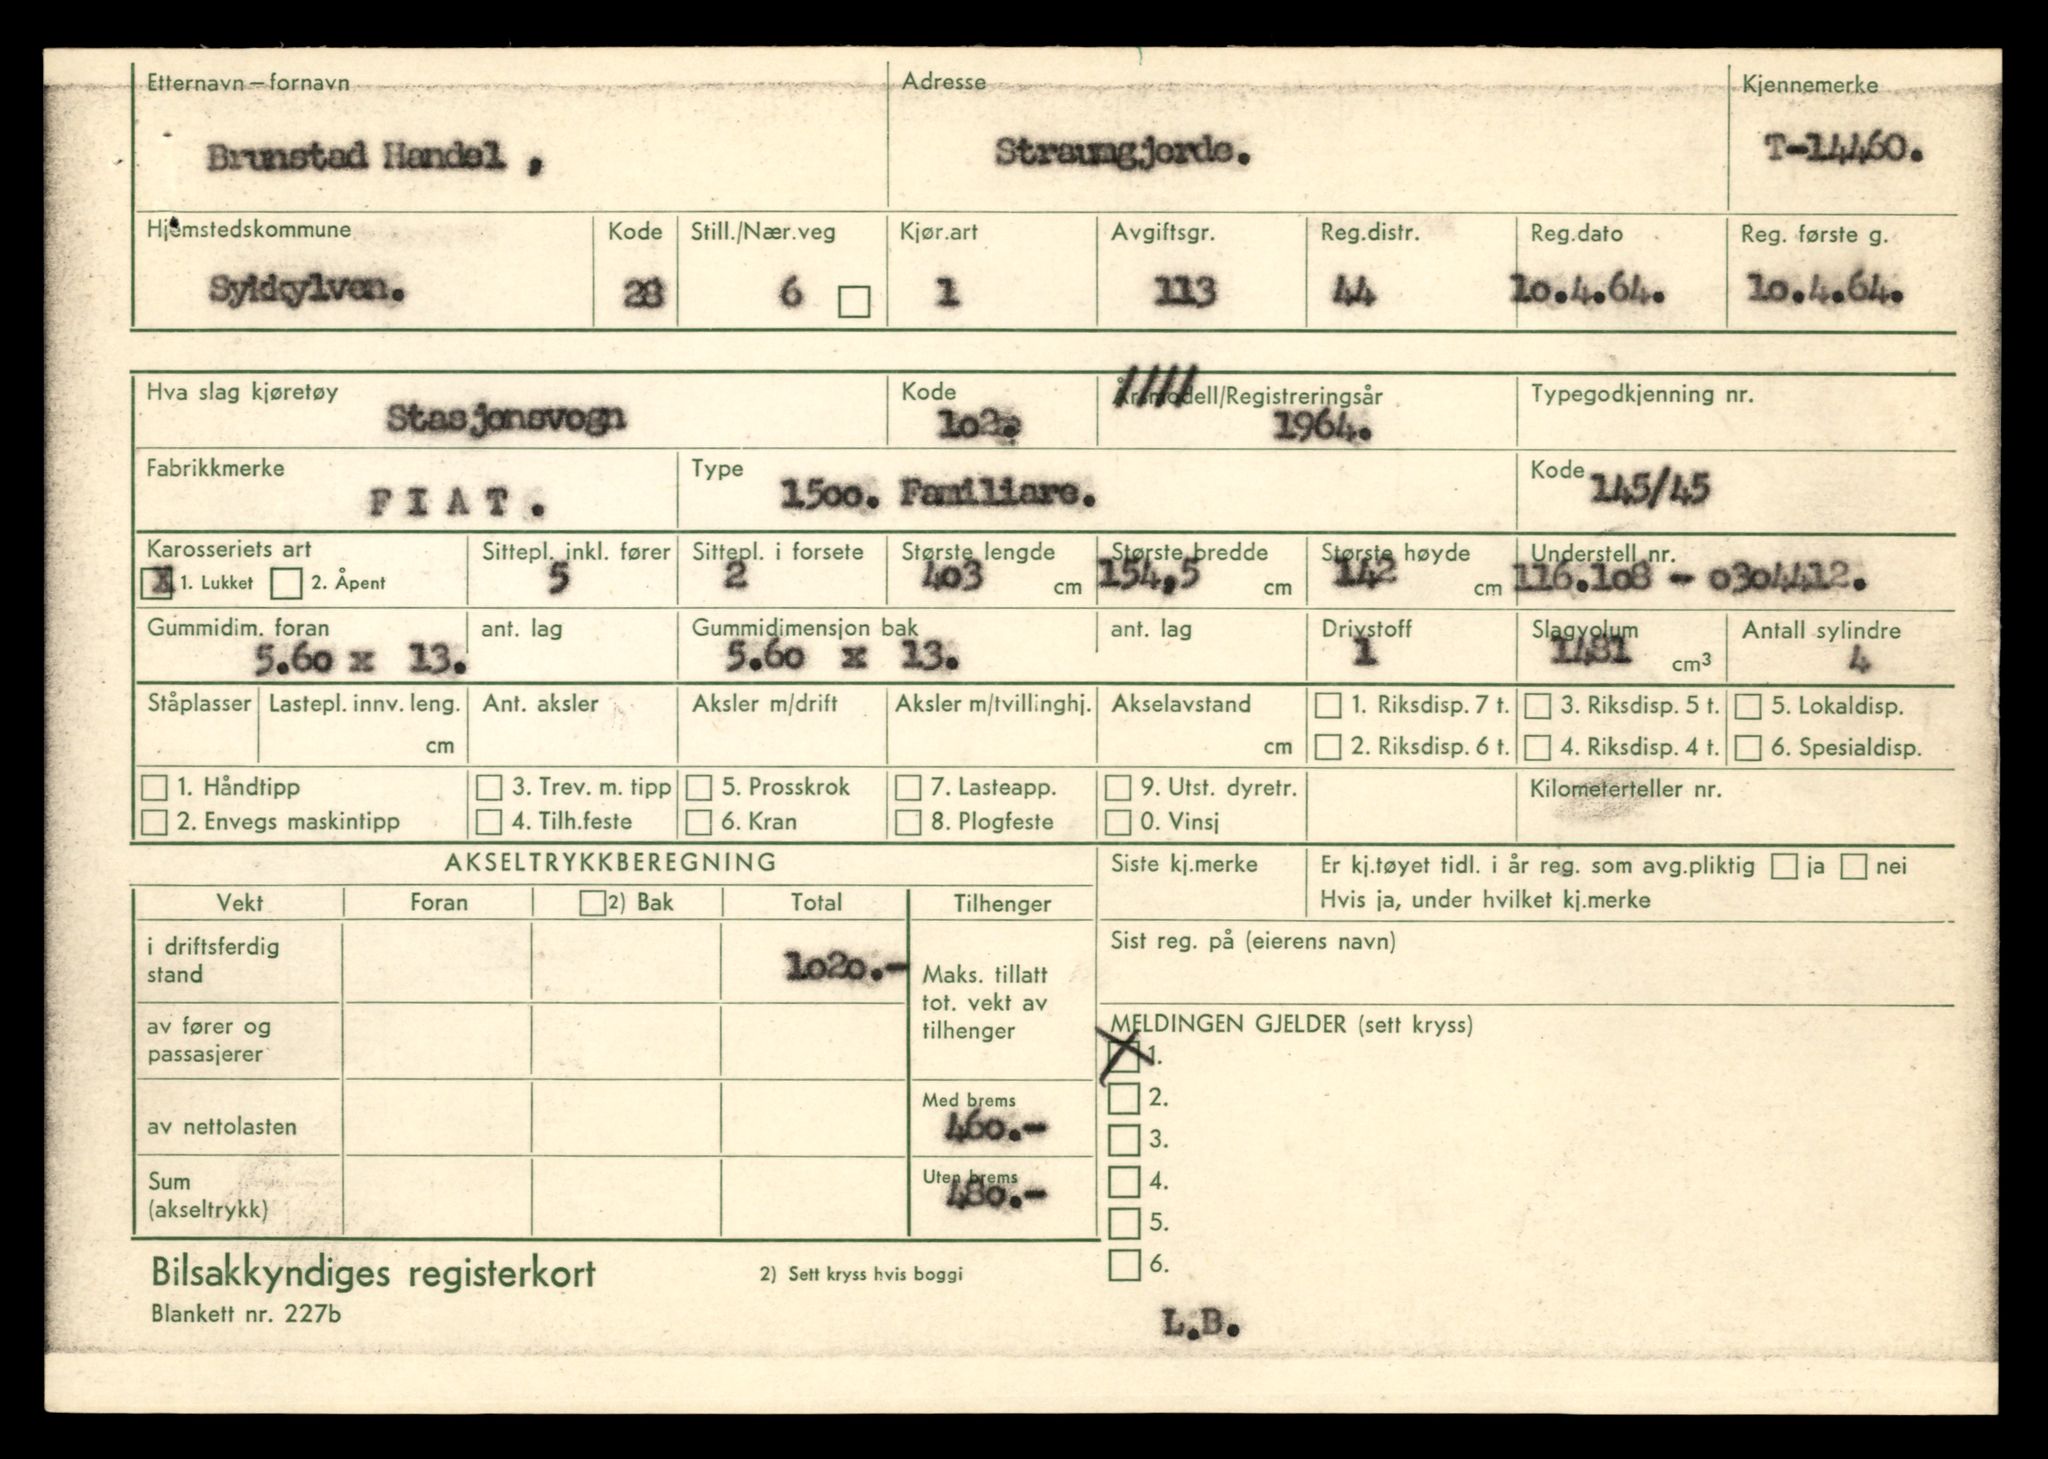 Etternavn – fornavn Adresse Kjennemerke
Brunstad Handel , Straumgjerde. T-14460.
Hjemstedskommune Kode Still./Nær.veg Kjør.art Avgiftsgr. Reg.distr. Reg.dato Reg. første g.
Sykkylven. 28 6 1 113 44 10.4.64. 10.4.64.
Hva slag kjøretøy Kode Årsmodell/Registreringsår Typegodkjenning nr.
Stasjonsvogn 102. 1964.
Fabrikkmerke Type Kode
F I A T . 1500. Familiare. 145/45
Karosseriets art Sittepl. inkl. fører Sittepl. i forsete Største lengde Største bredde Største høyde Understell nr.
X 1. Lukket 2. Åpent 5 2 403 cm 154,5 cm 142 cm 116.108 - 0304412.
Gummidim. foran ant. lag Gummidimensjon bak ant. lag Drivstoff Slagvolum Antall sylindre
5.60 x 13. 5.60 x 13. 1 1481 cm³ 4
Ståplasser Lastepl. innv. leng. Ant. aksler Aksler m/drift Aksler m/tvillinghj. Akselavstand 1. Riksdisp. 7 t. 3. Riksdisp. 5 t. 5. Lokaldisp.
cm cm 2. Riksdisp. 6 t. 4. Riksdisp. 4 t. 6. Spesialdisp.
1. Håndtipp 3. Trev. m. tipp 5. Prosskrok 7. Lasteapp. 9. Utst. dyretr. Kilometerteller nr.
2. Envegs maskintipp 4. Tilh.feste 6. Kran 8. Plogfeste 0. Vinsj
AKSELTRYKKBEREGNING Siste kj.merke Er kj.tøyet tidl. i år reg. som avg.pliktig ja nei
Hvis ja, under hvilket kj.merke
Vekt Foran 2) Bak Total Tilhenger
Sist reg. på (eierens navn)
i driftsferdig
stand 1020.-
Maks. tillatt
tot. vekt av
tilhenger
av fører og
passasjerer
MELDINGEN GJELDER (sett kryss)
X 1.
Med brems
av nettolasten 460.-
2.
3.
Uten brems
Sum 480.-
(akseltrykk)
4.
5.
6.
Bilsakkyndiges registerkort 2) Sett kryss hvis boggi
Blankett nr. 227b
L.B.